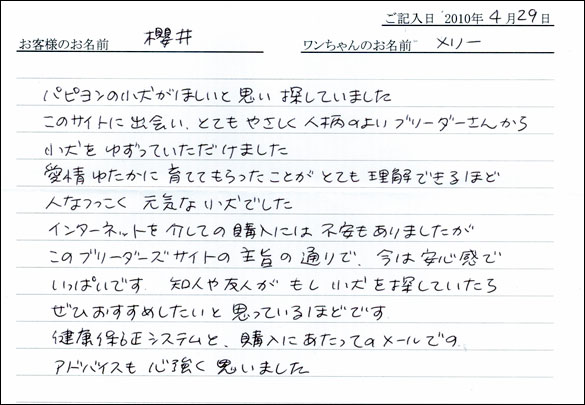 ご記入日 2010年 4月29日
お客様のお名前 櫻井 ワンちゃんのお名前 メリー
パピヨンの小犬がほしいと思い探していました
このサイトに出会い、とてもやさしく人柄のよいブリーダーさんから
小犬をゆずっていただけました
愛情ゆたかに育ててもらったことがとても理解できるほど
人なつっこく元気な小犬でした
インターネットを介しての購入には不安もありましたが
このブリーダーズサイトの主旨の通りで、今は安心感で
いっぱいです 知人や友人がもし小犬を探していたら
ぜひおすすめしたいと思っているほどです
健康保証システムと、購入にあたってのメールでの
アドバイスも心強く思いました